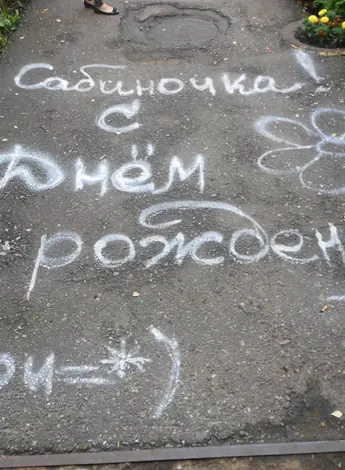 Сабиночка!
С
Днём
рожден
ри=*)